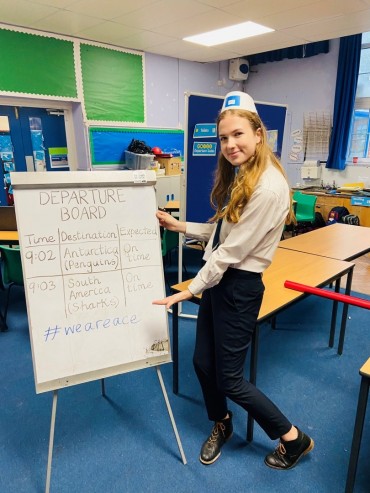 DEPARTURE
BOARD
Time Destination Expected
9:02 Antarctica On
(Penguins) time
9:03 South On
America time
(Sharks)
#weareace